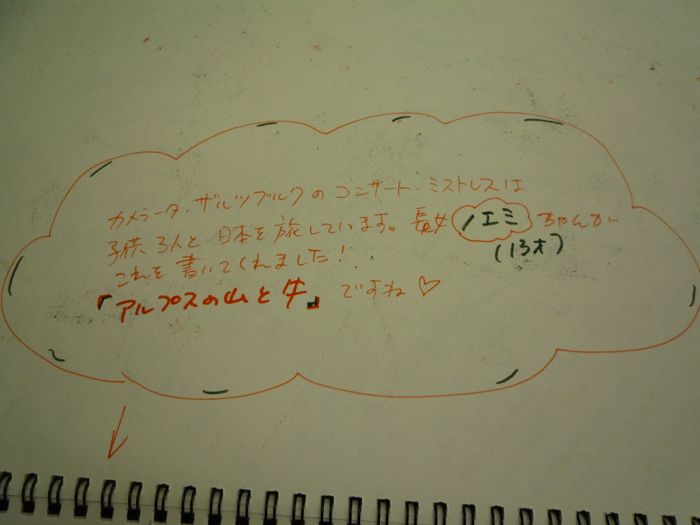 カメラータ・ザルツブルクのコンサート・ミストレスは
子供3人と日本を旅しています。長女ノエミちゃんが
(13才)
これを書いてくれました!
「アルプスの山と牛」ですね♡